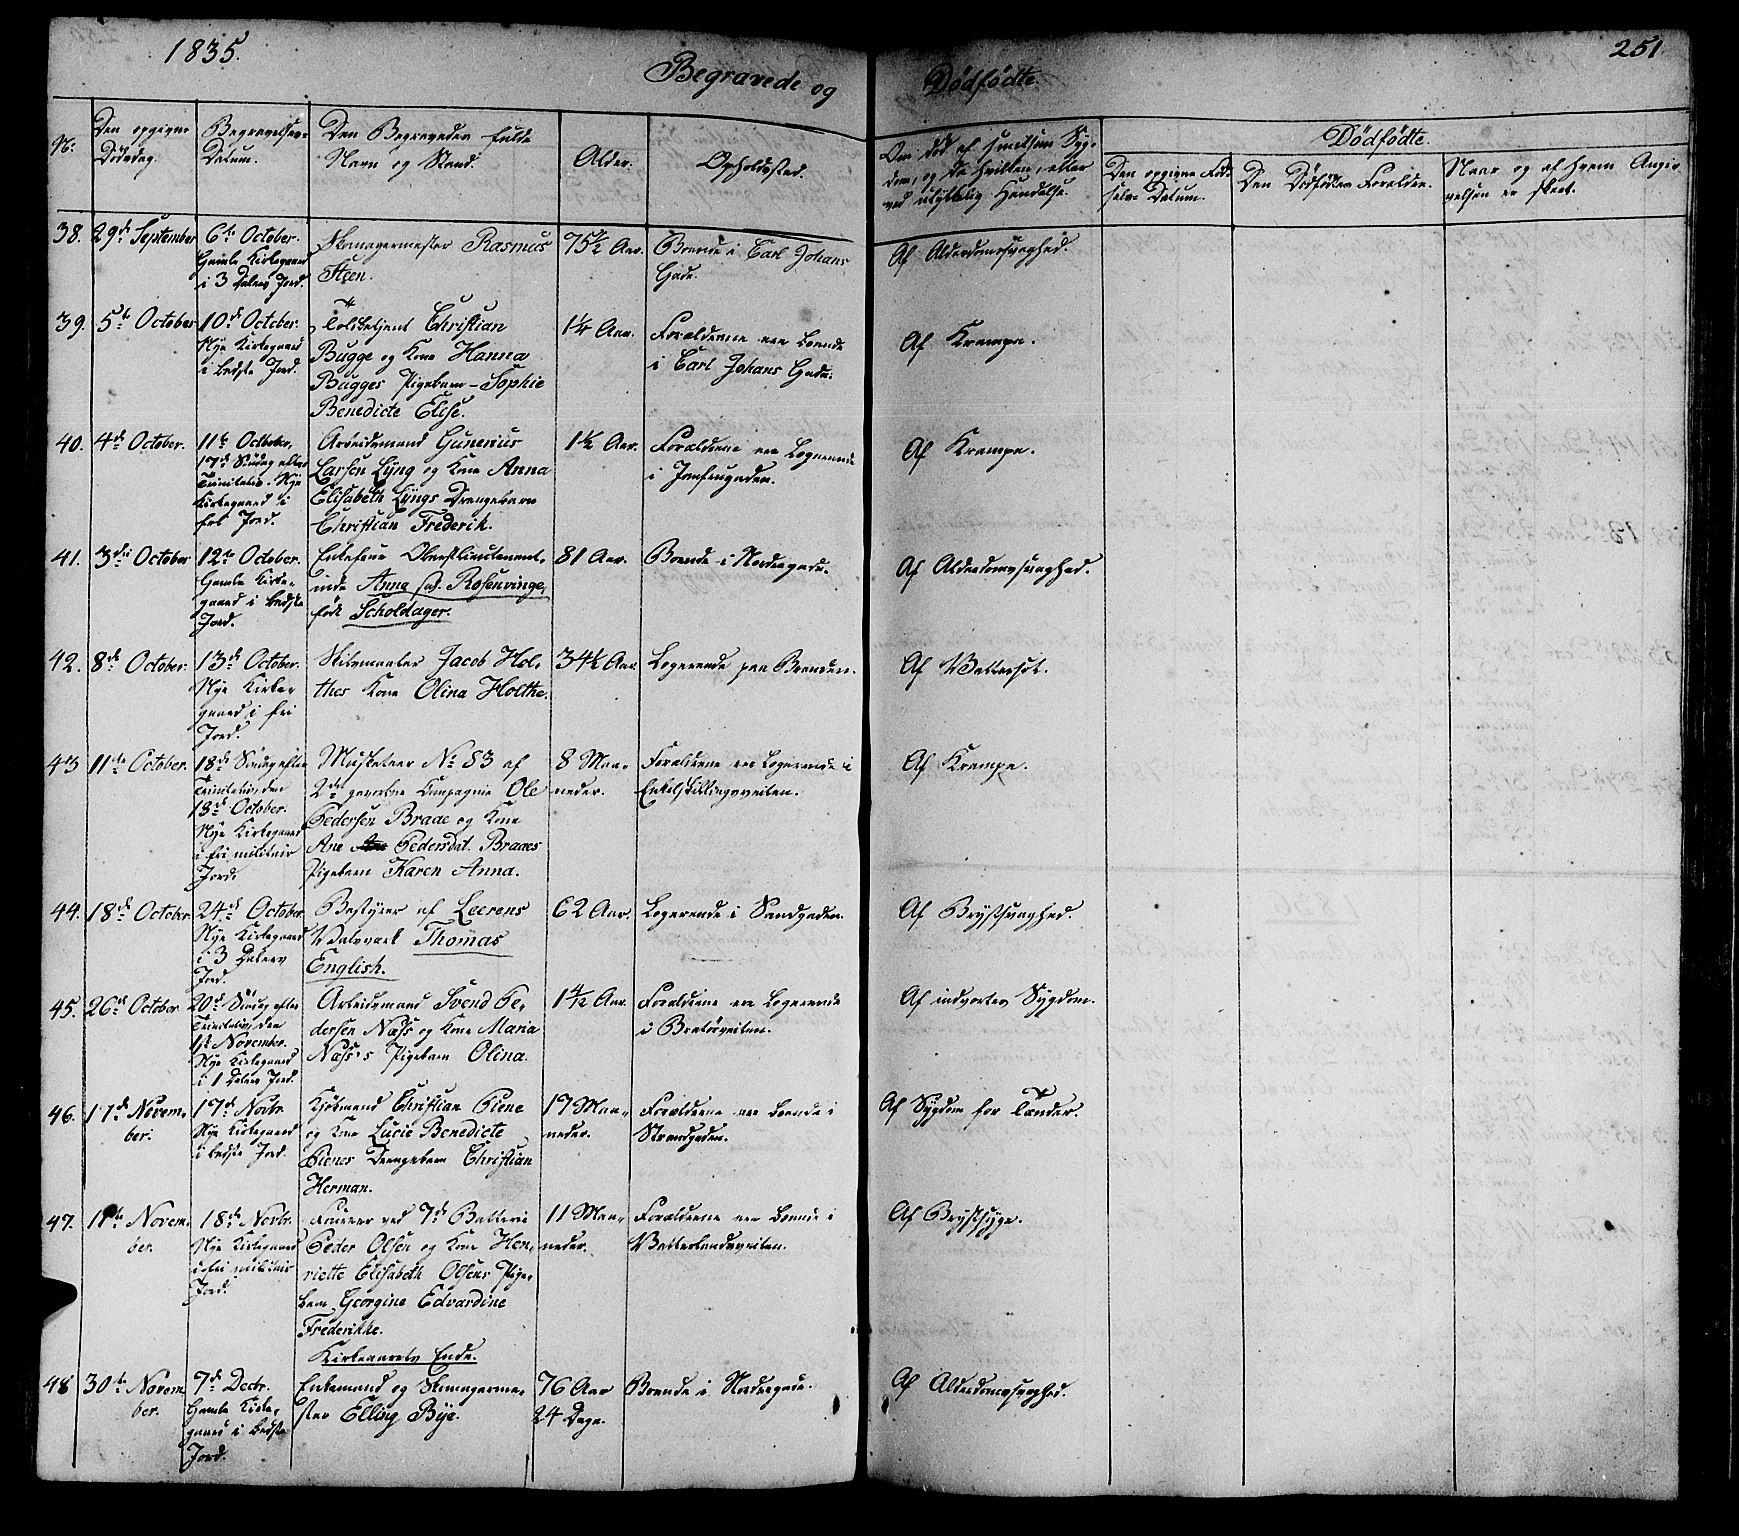 1835.
251
Begravede og Dödfödte.
No.
Den opgivne Dödsdag.
Begravelses-Datum.
Den Begravedes fulde Navn og Stand.
Alder.
Opholdssted.
Om död af smitsom Syg-
dom, og da hvilken, eller
ved ulykkelig Hændelse.
Dödfödte.
Den opgivne Föd-
sels-Datum.
Den Dödfödtes Forældre.
Naar og af hvem Angi-
velsen er skeet.
38.
29de September
6te October.
Gamle Kirkegaard
i 3 Dalers Jord.
Skomagermester Rasmus
Steen.
75 1/2 Aar.
Boende i Carl Johans
Gade.
Af Alderdomssvaghed.
39.
5te October
10de October.
Nye Kirkegaard
i bedste Jord.
Toldbetjent Christian
Bugge og Kone Hanna
Bugges Pigebarn - Sophie
Benedicte Elise.
1 1/4 Aar.
Forældrene ere boende
i Carl Johans Gade.
Af Krampe.
40.
4de October.
11te October,
17de Söndag efter
Trinitatis. Nye
Kirkegaard i
fri Jord.
Arbeidsmand Gunerius
Larsen Lÿng og Kone Anna
Elisabeth Lÿngs Drengebarn
Christian Frederik.
1 1/2 Aar.
Forældrene ere Logerende
i Jomfrugaden.
Af Krampe.
41.
3die October
12te October.
Gamle Kirke-
gaard i bedste
Jord.
Enkefrue Oberstlieutenant-
inde Anna sal. Rosenvinge,
født Scholdager.
81 Aar.
Boende i Nordregade.
Af Alderdomssvaghed.
42.
8de October.
13de October.
Nye Kirke-
gaard i fri
Jord.
Skibsmaaler Jacob Hol-
thes Kone Olina Holthe.
34 1/2 Aar.
Logerende paa Branden.
Af Vattersot.
43
11te October.
18de Söndag efter
Trinitatis, den
18de October.
Nye Kirkegaard
i fri militair
Jord.
Musketeer No 83 af
2det gevorbne Compagnie Ole
Pedersen Braae og Kone
Ane Pedersdat. Braaes
Pigebarn Karen Anna.
8 Maa-
neder.
Forældrene ere Logerende i
Enkelskillingsveiten.
Af Krampe.
44.
18de October
24de October
Nye Kirkegaard
i 3 Dalers
Jord.
Bestyrer af Leerens
Valsværk Thomas
English.
62 Aar.
Logerende i Sandgaden.
Af Brystsvaghed.
45.
26de October
20de Söndag efter
Trinitatis, den
1ste November.
Nye Kirkegaard
i 1 Dalers Jord.
Arbeidsmand Svend Pe-
dersen Næss og Kone Maria
Næss's Pigebarn Olina.
1 4/12 Aar.
Forældrene ere Logerende
i Bratörveiten.
Af indvortes Sygdom.
46.
17de Novem-
ber.
17de Novbr.
Nye Kirkegaard
i bedste Jord.
Kjöbmand Christian Piene
og Kone Lucie Benedicte
Pienes Drengebarn Christian
Herman.
17 Maa-
neder.
Forældrene ere boende i
Strandgaden.
Af Sygdom for Tænder.
47.
11te Novem-
ber.
18de Novbr.
Nye Kirkegaard
i fri militair
Jord.
Fourer ved 7de Batteri
Peder Olsen og Kone Hen-
riette Elisabeth Olsens Pige-
barn Georgine Edvardine
Frederikke.
11 Maa-
neder.
Forældrene ere boende i
Vatterlandsveiten.
Af Brystsyge.
Kirkeaarets Ende.
48
30te Novem-
ber.
7de Decbr.
Gamle Kirke-
gaard i bedste
Jord.
Enkemand og Skomagerme-
ster Elling Bÿe.
76 Aar
24 Dage.
Boende i Nordregade.
Af Alderdomssvaghed.